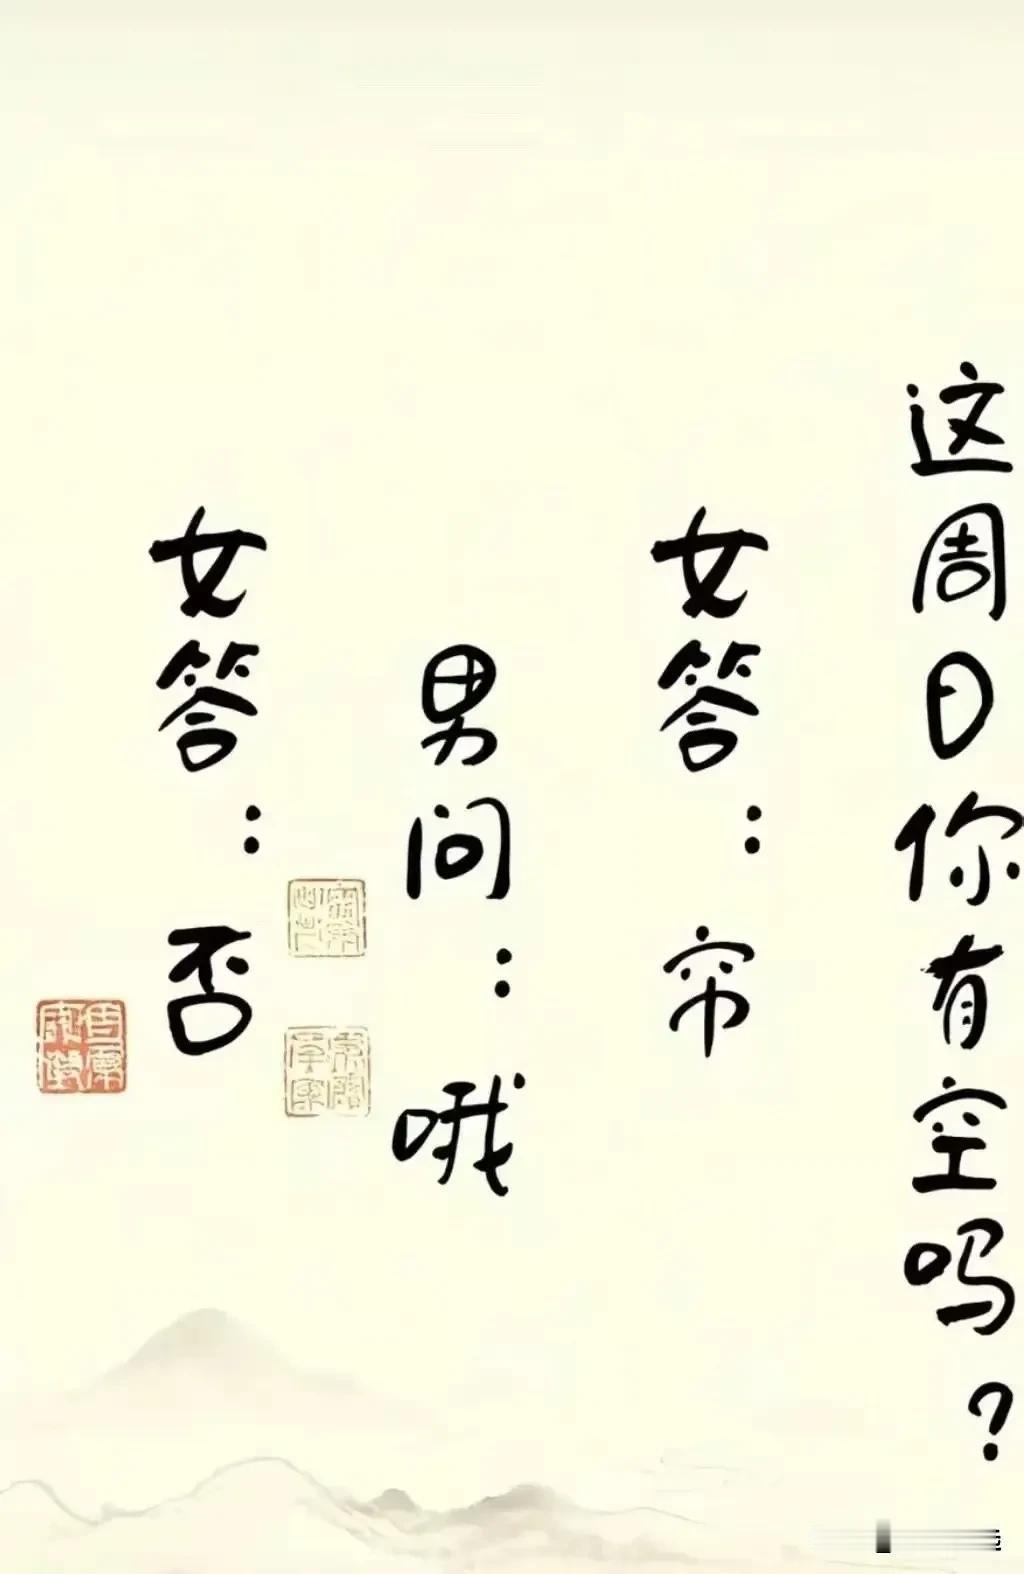 这周日你有空吗?
女答:帘
男问:哦
女答:否